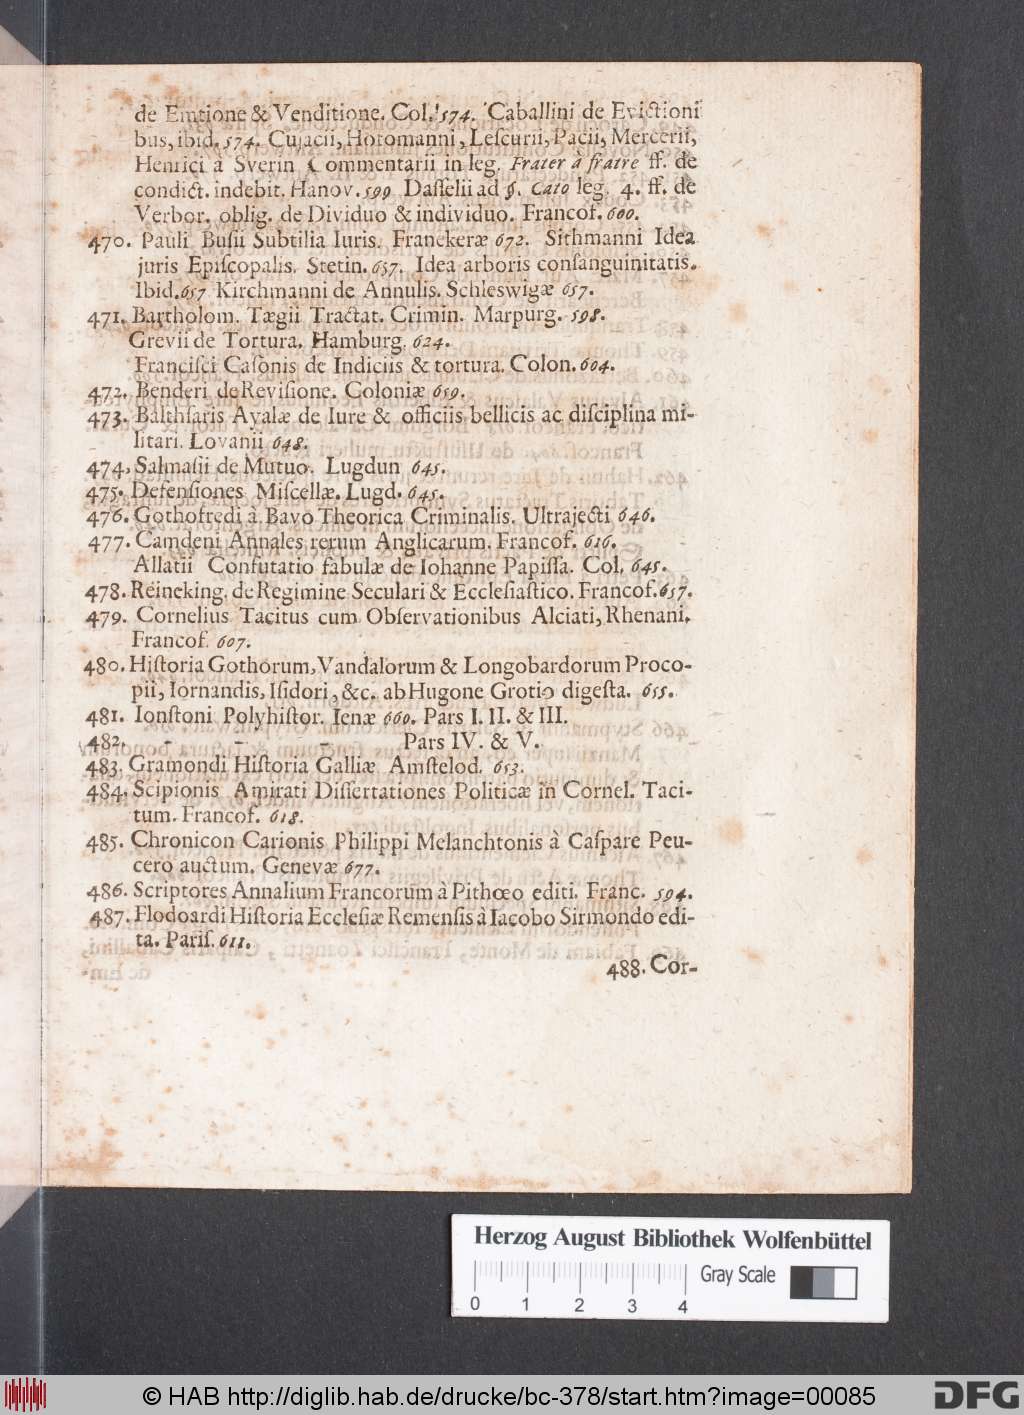 de Emtione & Venditione. Col. 574. Caballini de Evictioni
bus, ibid. 574. Cujacii, Hotomanni, Leſcurii, Pacii, Mercerii,
Henrici à Sverin Commentarii in leg. Frater à fratre ff. de
condict. indebit. Hanov. 599 Daſſelii ad §. Cato leg. 4. ff. de
Verbor. oblig. de Dividuo & individuo. Francof. 600.
470. Pauli Buſii Subtilia Iuris. Franekeræ 672. Sithmanni Idea
juris Epiſcopalis. Stetin. 657. Idea arboris conſanguinitatis.
Ibid. 657 Kirchmanni de Annulis. Schleswigæ 657.
471. Bartholom. Tægii Tractat. Crimin. Marpurg. 598.
Grevii de Tortura. Hamburg. 624.
Franciſci Caſonis de Indiciis & tortura. Colon. 604.
472. Benderi de Reviſione. Coloniæ 659.
473. Balthſaris Ayalæ de Iure & officiis bellicis ac diſciplina mi-
litari. Lovanii 648.
474. Salmaſii de Mutuo. Lugdun 645.
475. Defenſiones Miſcellæ. Lugd. 645.
476. Gothofredi à Bavo Theorica Criminalis. Ultrajecti 646.
477. Camdeni Annales rerum Anglicarum. Francof. 616.
Allatii Confutatio fabulæ de Iohanne Papiſſa. Col. 645.
478. Reineking. de Regimine Seculari & Eccleſiaſtico. Francof. 657.
479. Cornelius Tacitus cum Obſervationibus Alciati, Rhenani.
Francof. 607.
480. Hiſtoria Gothorum, Vandalorum & Longobardorum Proco-
pii, Iornandis, Iſidori, &c. ab Hugone Grotio digeſta. 655.
481. Ionſtoni Polyhiſtor. Ienæ 660. Pars I. II. & III.
482. - - Pars IV. & V.
483. Gramondi Hiſtoria Galliæ Amſtelod. 653.
484. Scipionis Amirati Diſſertationes Politicæ in Cornel. Taci-
tum. Francof. 618.
485. Chronicon Carionis Philippi Melanchtonis à Caſpare Peu-
cero auctum. Genevæ 677.
486. Scriptores Annalium Francorum à Pithœo editi. Franc. 594.
487. Flodoardi Hiſtoria Eccleſiæ Remenſis à Iacobo Sirmondo edi-
ta. Pariſ. 611.
488. Cor-
Herzog August Bibliothek Wolfenbüttel
Gray Scale
0 1 2 3 4
© HAB http://diglib.hab.de/drucke/bc-378/start.htm?image=00085
DFG